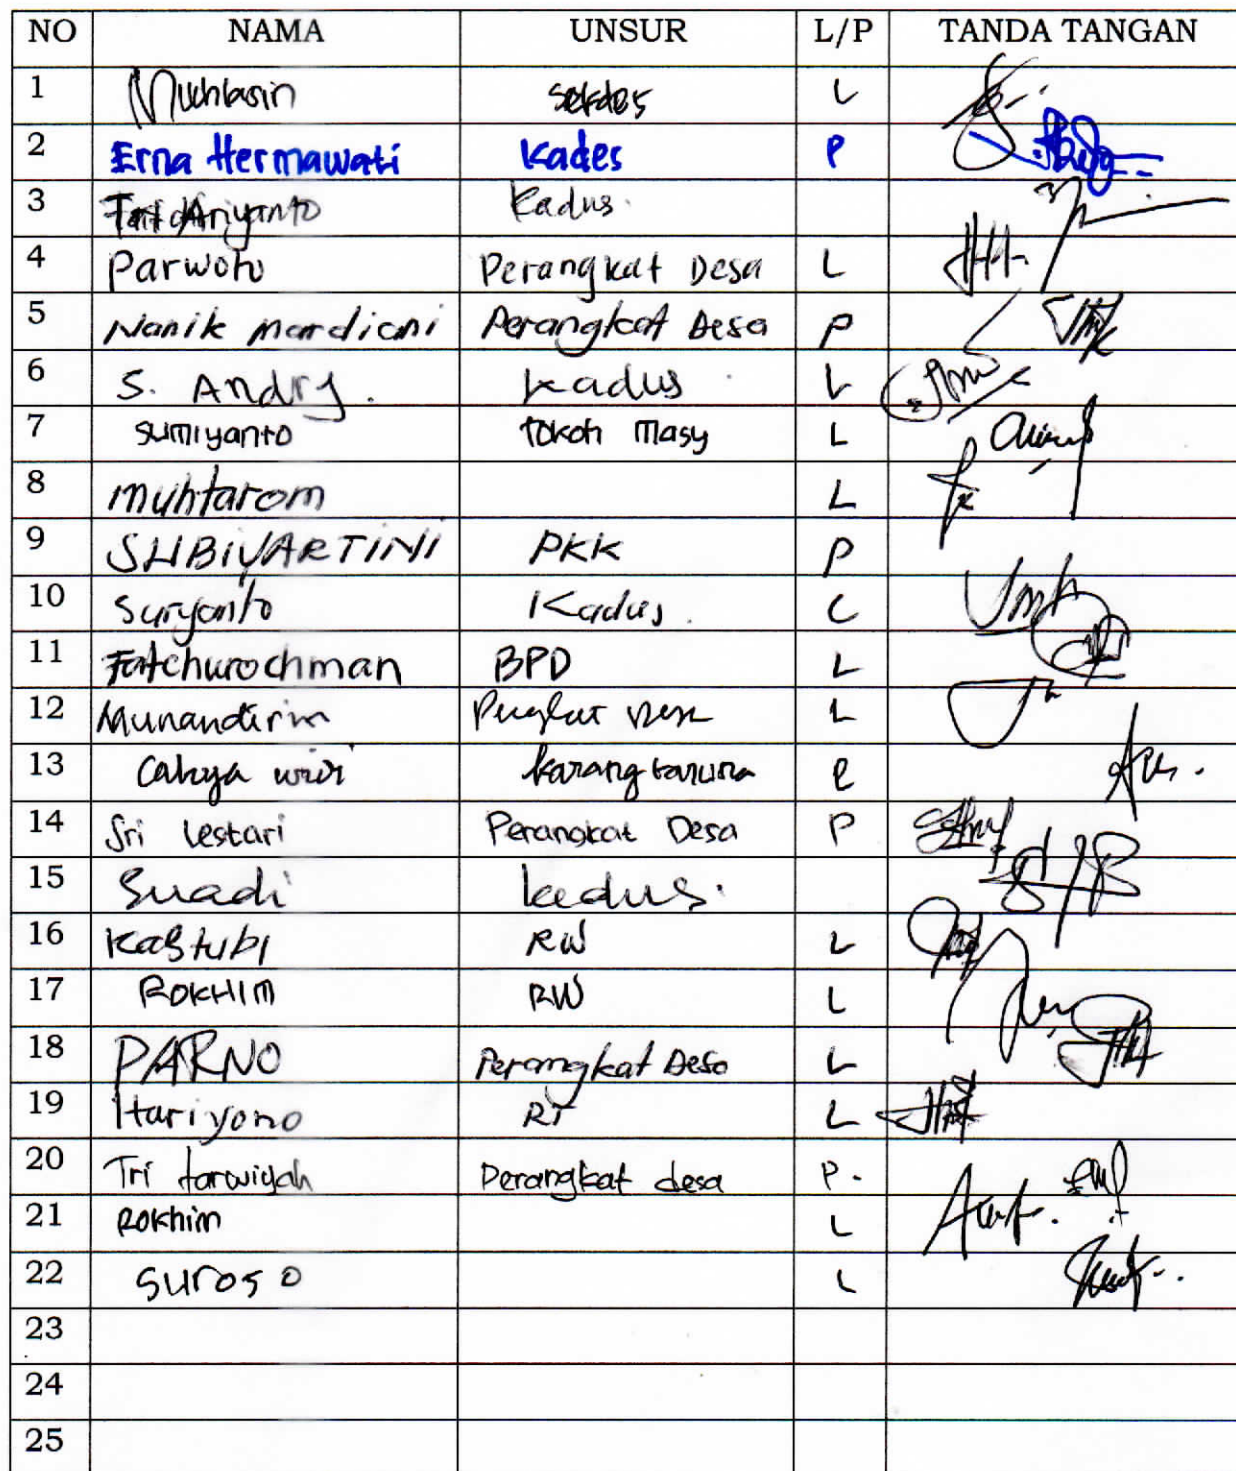 NO NAMA UNSUR L/P TANDA TANGAN
1 Mukhlasin sekdes L
2 Erna Hermawati Kades P
3 Ariyanto Kadus.
4 Parwoto Perangkat Desa L
5 Nanik mardiani Perangkat Desa P
6 S. Andry. Kadus L
7 sumiyanto tokoh Masy L
8 muhtarom L
9 SUBIYARTINI PKK P
10 Suryanto Kadus. L
11 Fatchurochman BPD L
12 L
13 Cahya karang taruna P
14 Sri Lestari Perangkat Desa P
15 Suadi kadus.
16 Kastubi RW L
17 ROKHIM RW L
18 PARNO Perangkat Desa L
19 Hariyono RT L
20 Tri tarwiyah Perangkat desa P.
21 Rokhim L
22 SUROSO L
23
24
25